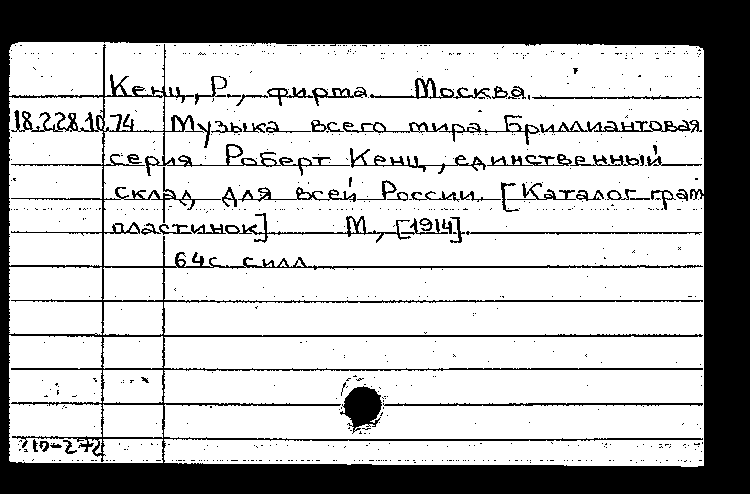 Кенц, Р., фирма. Москва.
18.228.10.74 Музыка всего мира. Бриллиантовая
серия Роберт Кенц, единственный
склад для всей России. [Каталог грам
пластинок]. М., [1914].
64с. с илл.
210-272